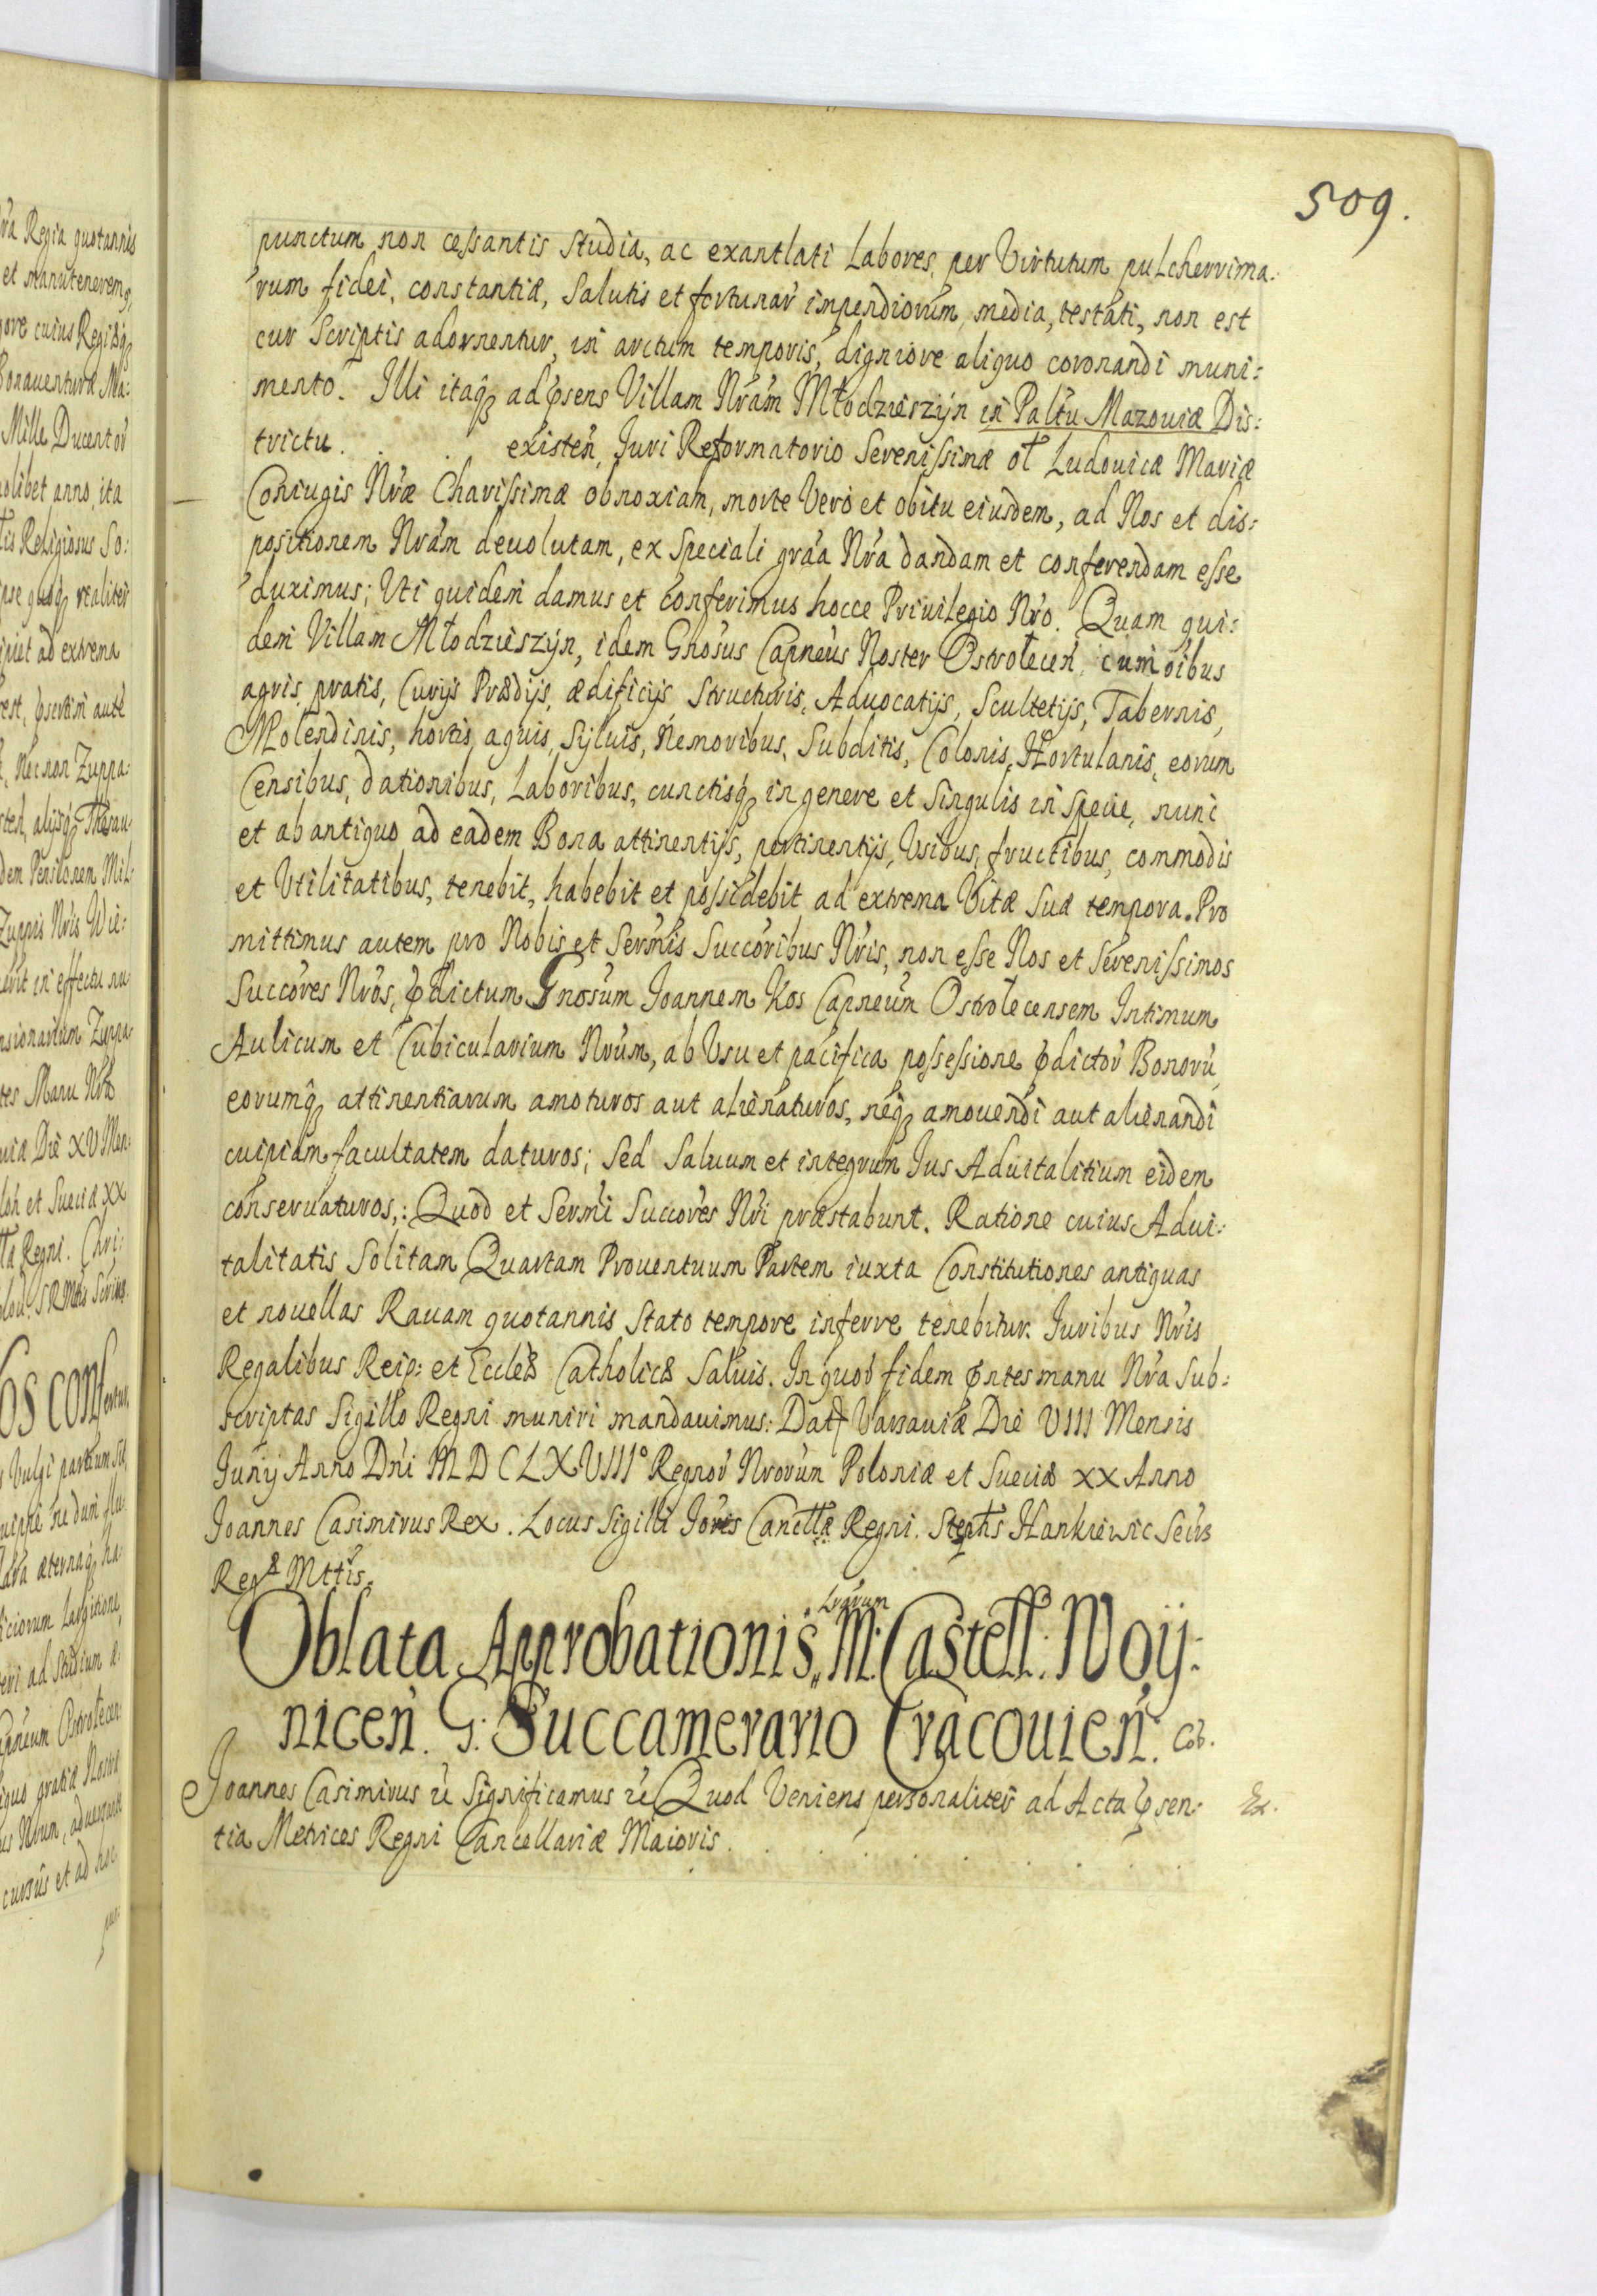 509.
punctum non cessantis studia, ac exantlati Labores, per Virtutum pulcherrima:
rum fidei, constantiæ, Salutis et fortunar̃ impendiorum, media, testati, non est
cur Scriptis adornentur, in arctum temporis, digniore aliquo coronandi muni:
mento. Illi itaq̃ ad p̃sens Villam Nr̃am Młodzieszÿn in Paltu Mazouiæ Dis:
trictu . . . existeñ, Iuri Reformatorio Serenissimæ ol̃ Ludouicæ Mariæ
Coniugis Nr̃æ Charissimæ obnoxiam, morte Vero et obitu eiusdem, ad Nos et dis:
positionem Nr̃am deuolutam, ex Speciali gr̃aa Nr̃a dandam et conferendam esse
duximus; Vti quidem damus et conferimus hocce Priuilegio Nr̃o. Quam qui:
dem Villam Młodzieszÿn, idem Gñosus Capneus Noster Ostroleceñ, cum oĩbus
agris, pratis, Curijs Prædijs, ædificijs, Structuris, Aduocatijs, Scultetijs, Tabernis,
Molendinis, hortis, aquis, Syluis, Nemoribus, Subditis, Colonis, Hortulanis, eorum
Censibus, dationibus, Laboribus, cunctisq̃ in genere et Singulis in Specie, nunc
et ab antiquo ad eadem Bona attinentijs, pertinentijs, Vsibus, fructibus, commodis
et Vtilitatibus, tenebit, habebit et possidebit ad extrema Vitæ Suæ tempora. Pro
mittimus autem pro Nobis et Serm̃is Succõribus Nr̃is, non esse Nos et Serenissimos
Succõres Nr̃os, p̃dictum Gnosum Joannem Kos Capneum Ostrolecensem Intimum
Aulicum et Cubicularium Nr̃um, ab Vsu et pacifica possessione p̃dictor̃ Bonorũ,
eorumq̃ attinentiarum amoturos aut alienaturos, neq̃ amouendi aut alienandi
cuipiam facultatem daturos; Sed Saluum et integrum Jus Aduitalitium eidem
conseruaturos,: Quod et Serm̃i Succõres Nr̃i præstabunt. Ratione cuius Adui:
talitatis Solitam Quartam Prouentuum Partem iuxta Constitutiones antiquas
et nouellas Rauam quotannis Stato tempore inferre tenebitur. Iuribus Nr̃is
Regalibus Reip: et Eccleæ Catholicæ Saluis. In quor̃ fidem p̃ntes manu Nr̃a Sub:
scriptas Sigillo Regni muniri mandauimus: Dat̃ Varsauiæ Die VIII Mensis
Junÿ Anno Dñi MDCLXVIII° Regnor̃ Nr̃orum Poloniæ et Sueciæ XX Anno
Joannes Casimirus Rex. Locus Sigilli Joris Canc̃llæ Regni. Stephs Hankiewic Secr̃s
Regæ Mttis.
Oblata Approbationis Lrarum M: Castell: Woÿ:
niceñ. G: Succamerario Cracouieñ: Cob.
Joannes Casimirus rc̃ Significamus rc̃ Quod Veniens personaliter ad Acta p̃sen: Ex.
tia Metrices Regni Cancellariæ Maioris . . . . . . . .